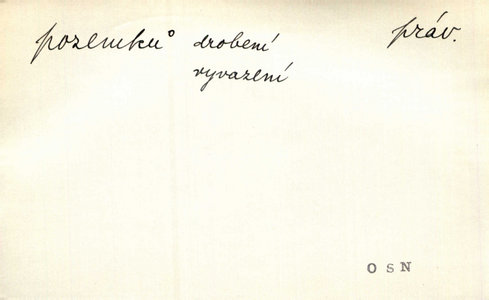 pozemků drobení práv.
vyvazení
OSN